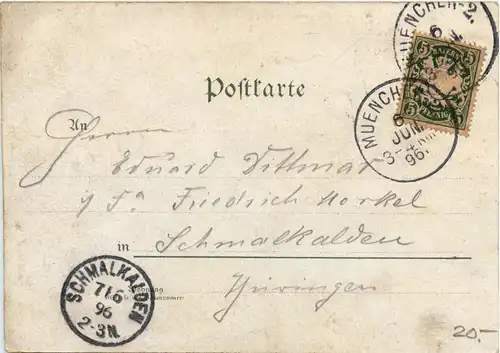 MUENCHEN 2.
6
5 5
PFENNIG
Postkarte
MUENCHEN
6
JUN
3-4 NM
96.
An
Herrn
Eduard Dittmar
Friedrich Horkel
in Schmalkalden
Thüringen
SCHMALKALDEN
7/6
96
2-3N.
Wohnung
20.-